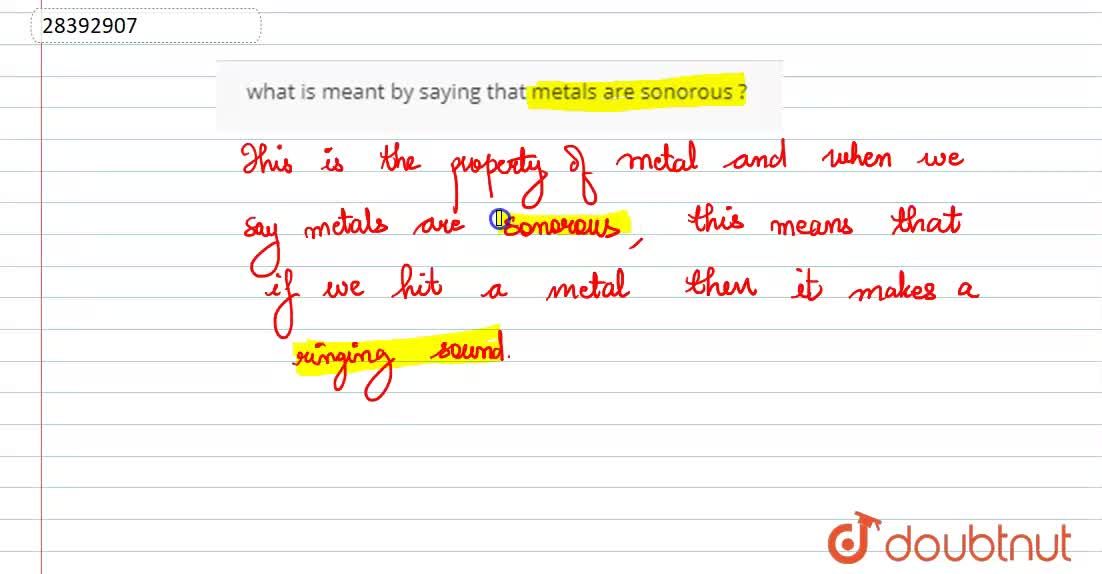 28392907
what is meant by saying that metals are sonorous ?
This is the property of metal and when we
say metals are sonorous, this means that
if we hit a metal then it makes a
ringing sound.
doubtnut